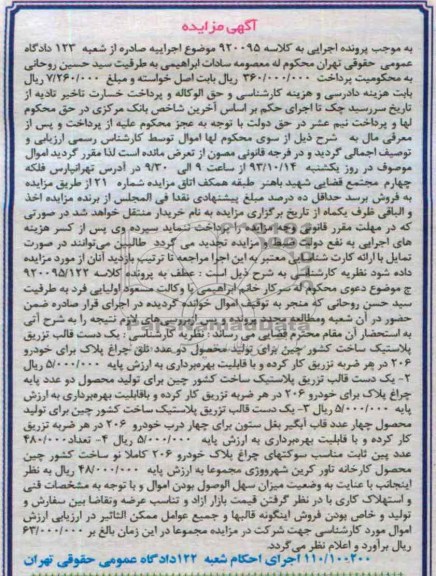 آگهی مزایده
به موجب پرونده اجرایی به کلاسه ۹۲۰۰۹۵ موضوع اجراییه صادره از شعبه ۱۲۳ دادگاه
عمومی حقوقی تهران محکوم له معصومه سادات ابراهیمی به طرفیت سید حسین روحانی
به محکومیت پرداخت ۳۶۰/۰۰۰/۰۰۰ ریال بابت اصل خواسته و مبلغ ۷/۲۶۰/۰۰۰ ریال
بابت هزینه دادرسی و هزینه کارشناسی و حق الوکاله و پرداخت خسارت تاخیر تادیه از
تاریخ سررسید چک تا اجرای حکم بر اساس آخرین شاخص بانک مرکزی در حق محکوم
لها و پرداخت نیم عشر در حق دولت با توجه به عجز محکوم علیه از پرداخت و پس از
معرفی مال به شرح ذیل از سوی محکوم لها اموال توسط کارشناس رسمی ارزیابی و
توصیف اجمالی گردید و در فرجه قانونی مصون از تعرض مانده است لذا مقرر گردید اموال
موصوف در روز یکشنبه ۹۳/۱۰/۱۴ از ساعت ۹ الی ۹/۳۰ در آدرس تهرانپارس فلکه
چهارم مجتمع قضایی شهید باهنر طبقه همکف اتاق مزایده شماره ۲۱ از طریق مزایده
به فروش برسد حداقل ده درصد مبلغ پیشنهادی نقدا فی المجلس از برنده مزایده اخذ
و الباقی ظرف یکماه از تاریخ برگزاری مزایده به نام خریدار منتقل خواهد شد در صورتی
که در مهلت مقرر قانونی وجه مزایده را پرداخت ننماید سپرده وی پس از کسر هزینه
های اجرایی به نفع دولت ضبط و مزایده تجدید می گردد طالبین می‌توانند در صورت
تمایل با ارائه کارت شناسایی معتبر به این اجرا مراجعه تا ترتیب بازدید آنان از مورد مزایده
داده شود نظریه کارشناسی به شرح ذیل است : عطف به پرونده کلاسه ۹۲۰۰۹۵/۱۲۲
ج موضوع دعوی محکوم له سرکار خانم ابراهیمی با وکالت مسعود اولیایی فرد به طرفیت
سید حسن روحانی که منجر به توقیف اموال خوانده گردیده در اجرای قرار صادره ضمن
حضور در آن شعبه ومطالعه مجدد پرونده و پس از بررسی‌های لازم نتیجه را به شرح آتی
به استحضار آن مقام محترم قضایی می رساند : نظریه کارشناسی : یک دست قالب تزریق
پلاستیک ساخت کشور چین برای تولید محصول دو عدد تلق چراغ پلاک برای خودرو
۲۰۶ در هر ضربه تزریق کار کرده و با قابلیت بهره‌برداری به ارزش پایه ۵/۰۰۰/۰۰۰ ریال
۲- یک دست قالب تزریق پلاستیک ساخت کشور چین برای تولید محصول دو عدد پایه
چراغ پلاک برای خودرو ۲۰۶ در هر ضربه تزریق کار کرده و باقابلیت بهره‌برداری به ارزش
پایه ۵/۰۰۰/۰۰۰ ریال ۳- یک دست قالب تزریق پلاستیک ساخت کشور چین برای تولید
محصول چهار عدد قاب آبگیر بغل ستون برای چهار درب خودرو ۲۰۶ در هر ضربه تزریق
کار کرده و با قابلیت بهره‌برداری به ارزش پایه ۵/۰۰۰/۰۰۰ ریال ۴- تعداد ۴۸۰/۰۰۰
عدد پین ثابت مناسب سوکتهای چراغ پلاک خودرو ۲۰۶ کاملا نو ساخت کشور چین
محصول کارخانه تاور کرین شهرووزی مجموعا به ارزش پایه ۴۸/۰۰۰/۰۰۰ ریال به نظر
اینجانب با عنایت به وضعیت میزان سهل الوصول بودن اموال و با توجه به مشخصات فنی
و استهلاک کاری با در نظر گرفتن قیمت بازار ازاد و تناسب عرضه وتقاضا بین سفارش و
تولید و خاص بودن فروش اینگونه قالبها و جمیع عوامل ممکن التاثیر در ارزیابی ارزش
اموال مورد کارشناسی جهت شرکت در مزایده مجموعا در این زمان بالغ بر ۶۳/۰۰۰/۰۰۰
ریال براورد و اعلام نظر می‌گردد.
۱۱۰/۱۰۰۲۰۰ اجرای احکام شعبه ۱۲۲دادگاه عمومی حقوقی تهران